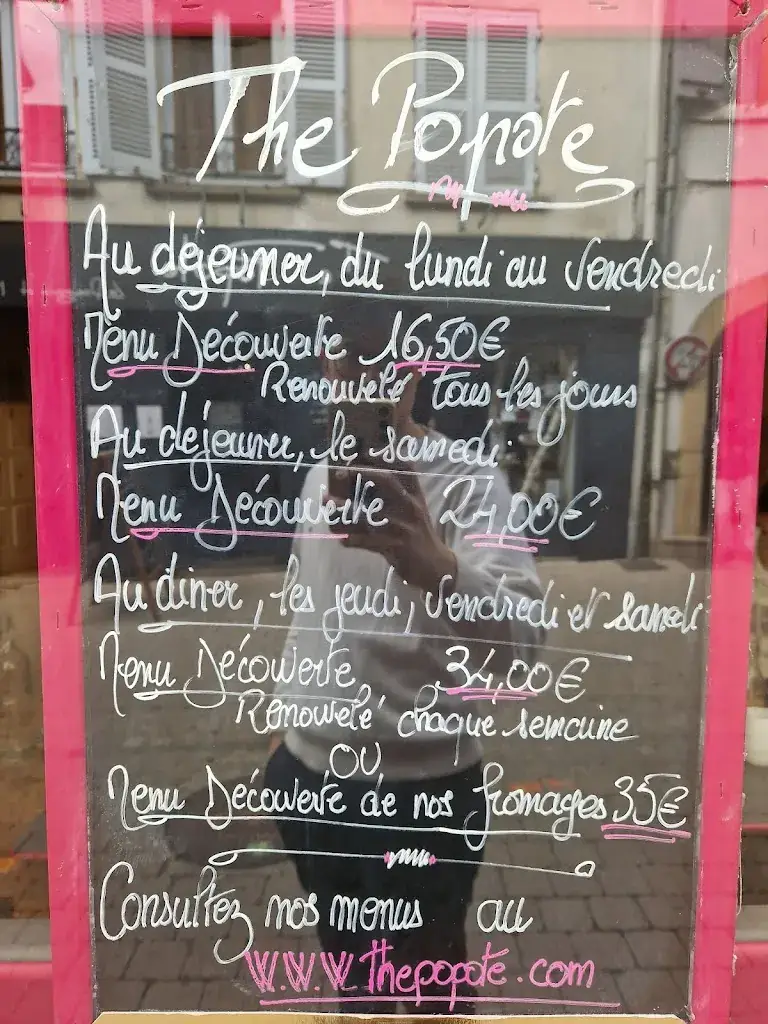 The Popote
Au déjeuner, du lundi au Vendredi
Menu Découverte 16,50€
Renouvelé tous les jours
Au déjeuner, le samedi
Menu Découverte 24,00€
Au diner, les jeudi, Vendredi et Samedi
Menu Découverte 34,00€
Renouvelé chaque semaine
OU
Menu Découverte de nos fromages 35€
Consultez nos menus au
www.thepopote.com